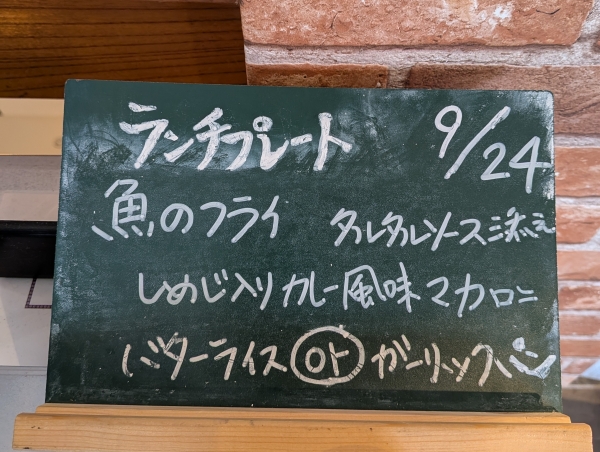 ランチプレート 9/24
魚のフライ タルタルソース添え
しめじ入りカレー風味マカロニ
バターライス or ガーリックパン